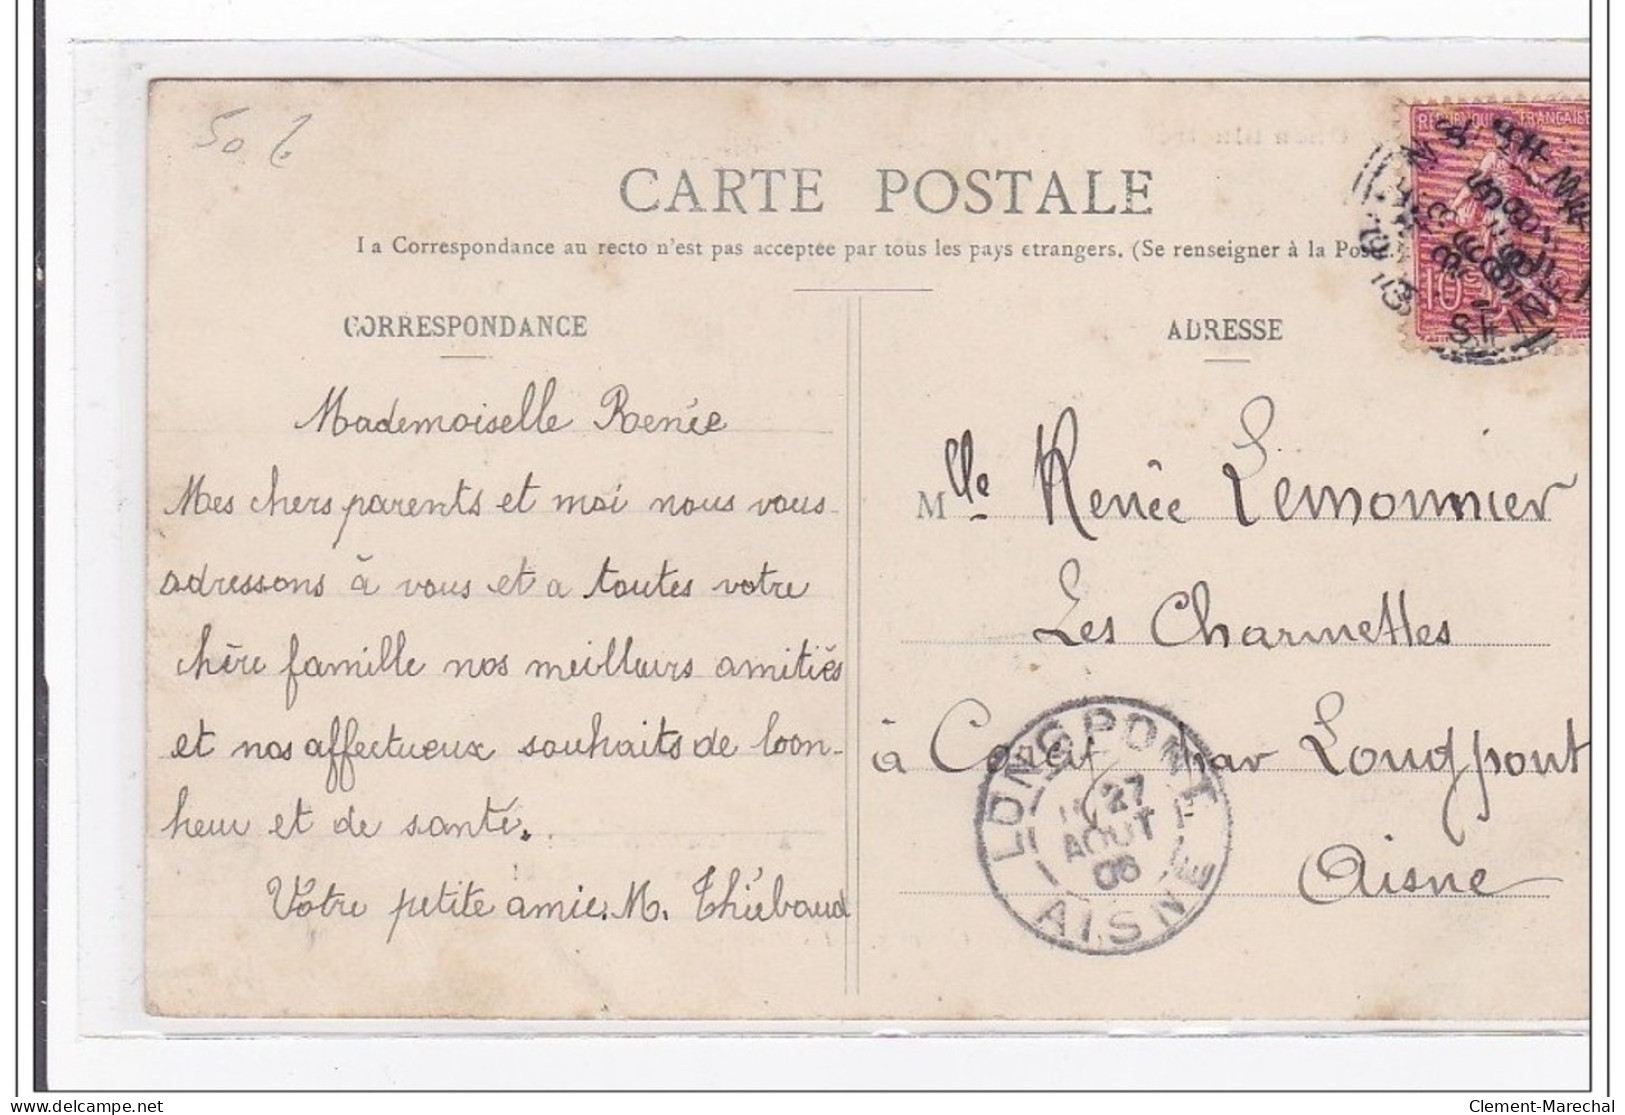 50 f
CARTE POSTALE
La Correspondance au recto n'est pas acceptée par tous les pays étrangers. (Se renseigner à la Poste.
CORRESPONDANCE
Mademoiselle Renée
Mes chers parents et moi nous vous
adressons à vous et a toutes votre
chère famille nos meilleurs amitiés
et nos affectueux souhaits de bon-
heur et de santé.
Votre petite amie. M. Thiébaud
ADRESSE
Mlle. Renée Lemonnier
Les Charmettes
à par Longpont
Aisne
REPUBLIQUE FRANÇAISE
10
SEINE
LONGPONT
27
AOUT
06
AISNE
Clement-Marechal